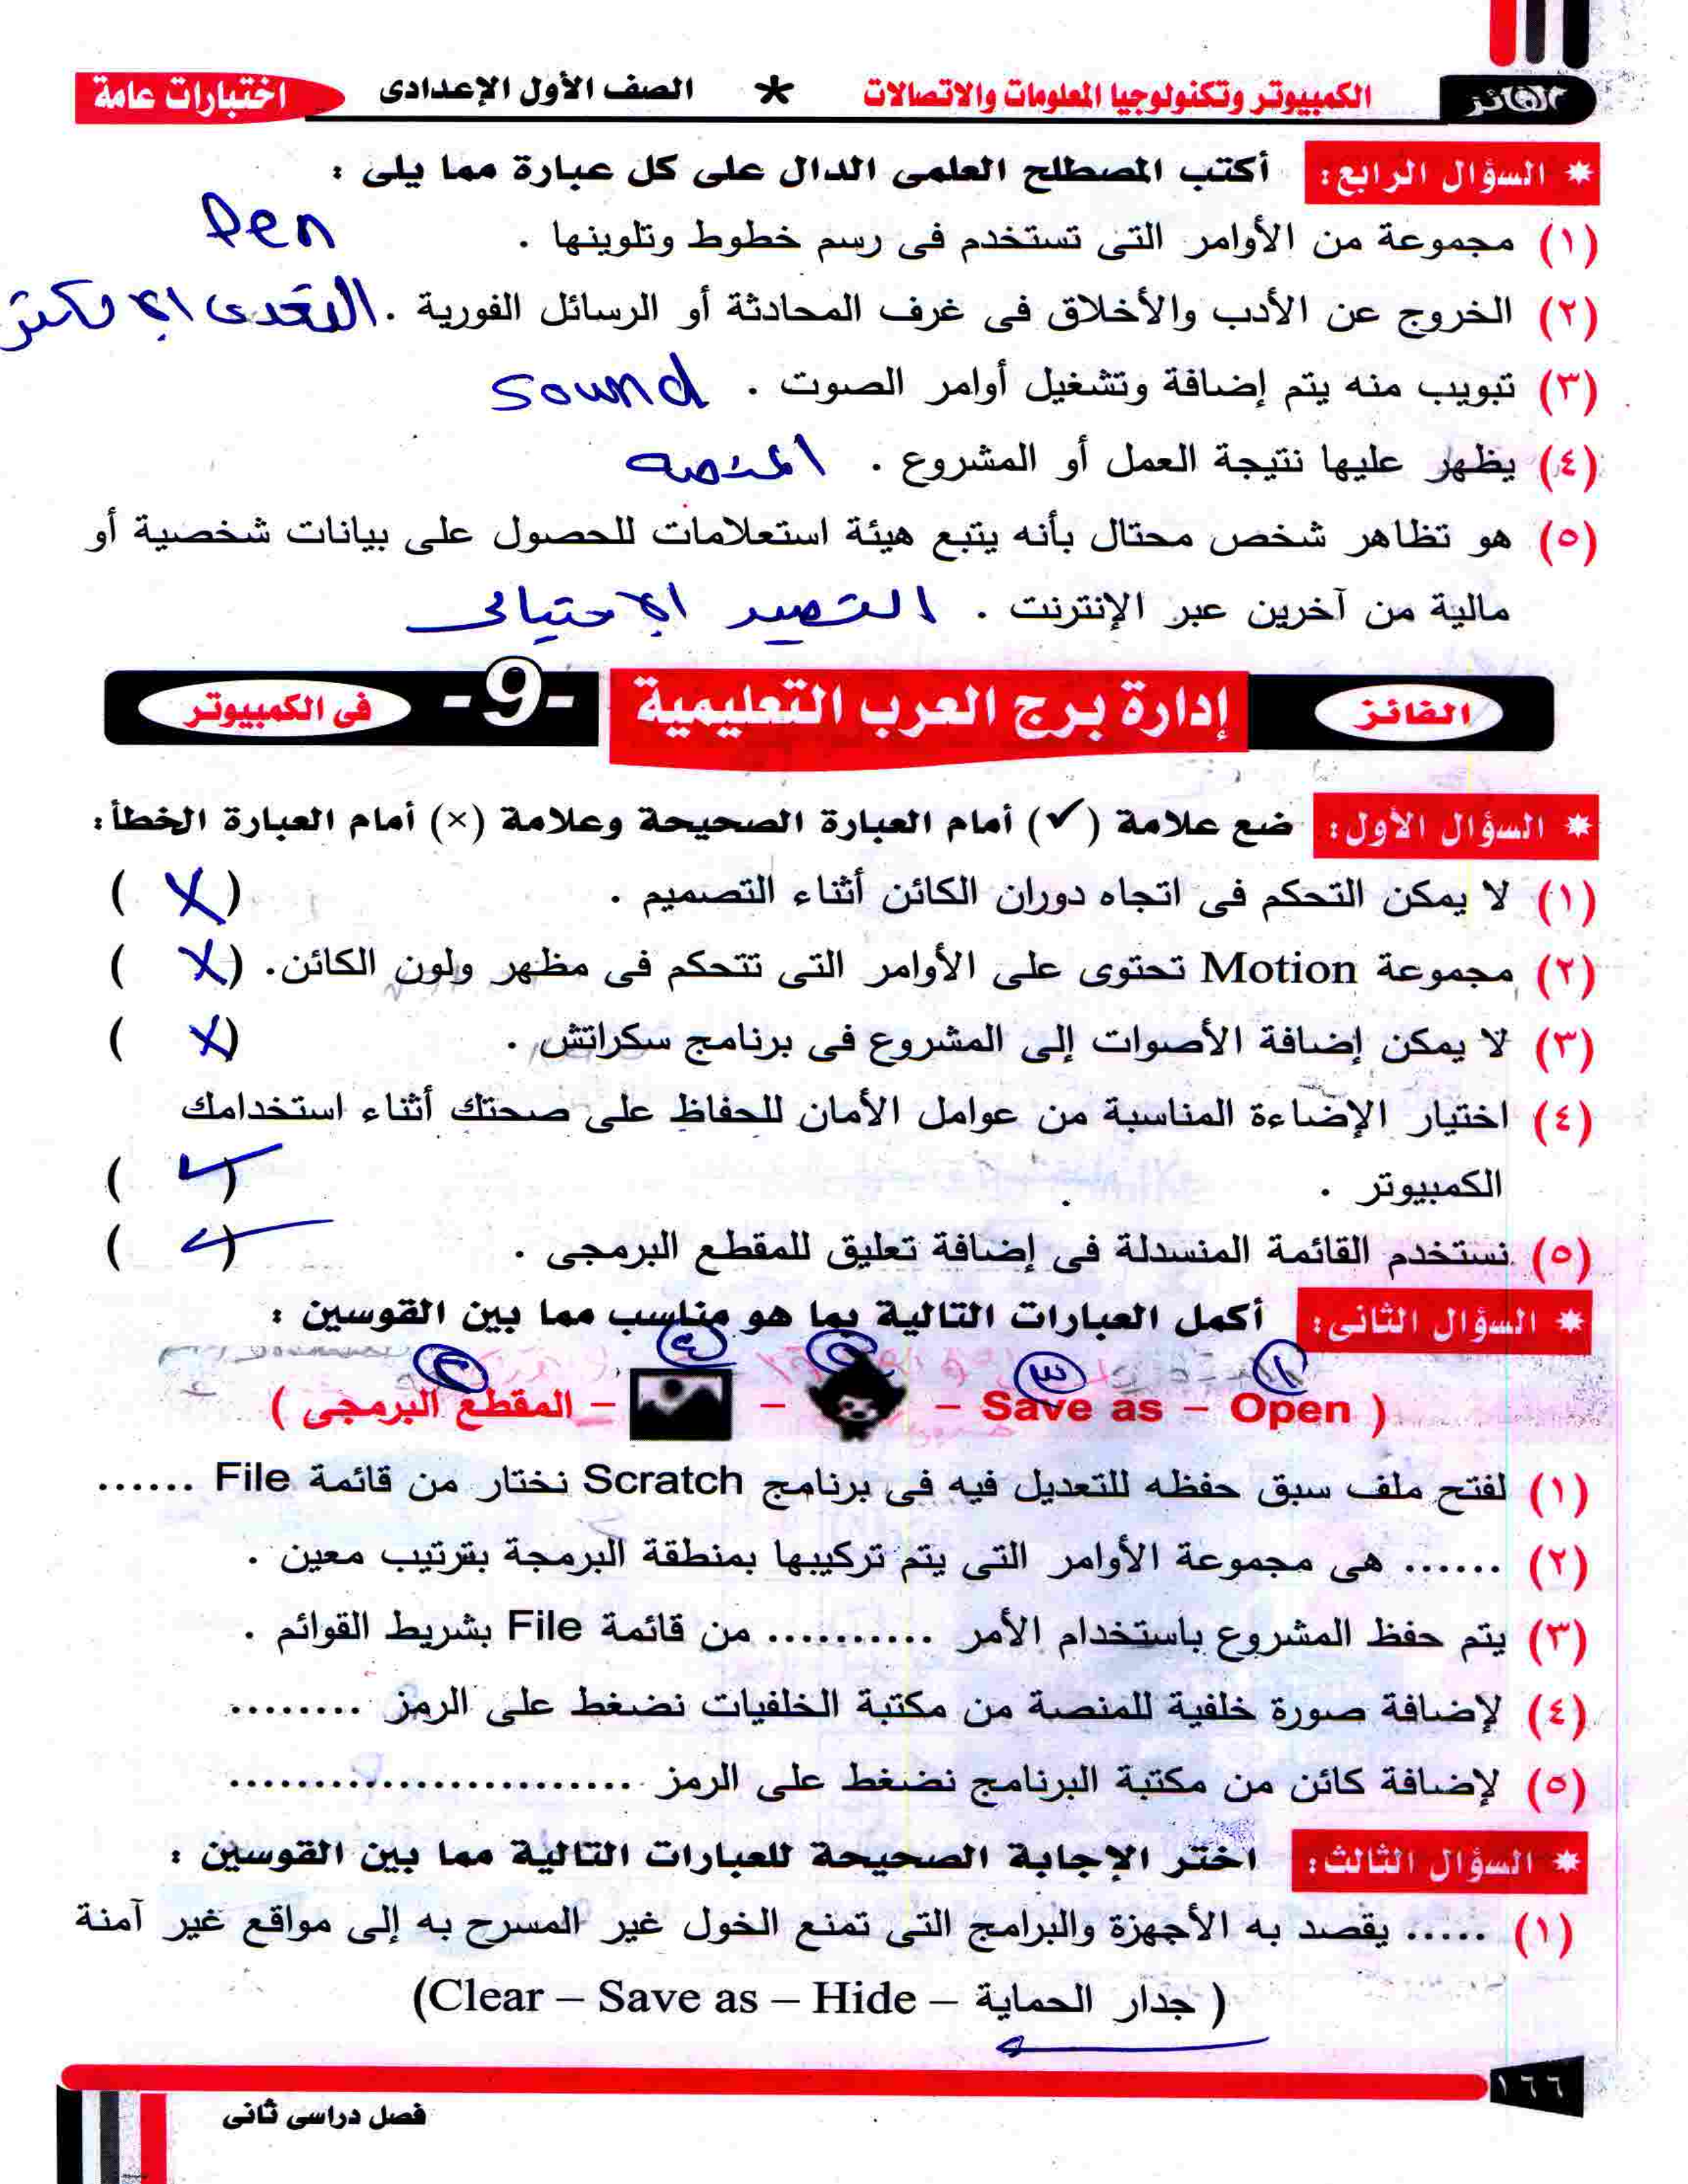 الفائز
الكمبيوتر وتكنولوجيا المعلومات والاتصالات * الصف الأول الإعدادى
اختبارات عامة
* السؤال الرابع: أكتب المصطلح العلمى الدال على كل عبارة مما يلى :
(١) مجموعة من الأوامر التى تستخدم فى رسم خطوط وتلوينها . Pen
(٢) الخروج عن الأدب والأخلاق فى غرف المحادثة أو الرسائل الفورية .
(٣) تبويب منه يتم إضافة وتشغيل أوامر الصوت . sound
(٤) يظهر عليها نتيجة العمل أو المشروع . المنصه
(٥) هو تظاهر شخص محتال بأنه يتبع هيئة استعلامات للحصول على بيانات شخصية أو
مالية من آخرين عبر الإنترنت . التصيد الاحتيالى
الفائز إدارة برج العرب التعليمية -9- فى الكمبيوتر
* السؤال الأول: ضع علامة (✓) أمام العبارة الصحيحة وعلامة (×) أمام العبارة الخطأ:
(١) لا يمكن التحكم فى اتجاه دوران الكائن أثناء التصميم . (X)
(٢) مجموعة Motion تحتوى على الأوامر التى تتحكم فى مظهر ولون الكائن. (X)
(٣) لا يمكن إضافة الأصوات إلى المشروع فى برنامج سكراتش . (X)
(٤) اختيار الإضاءة المناسبة من عوامل الأمان للحفاظ على صحتك أثناء استخدامك
الكمبيوتر . (✓)
(٥) نستخدم القائمة المنسدلة فى إضافة تعليق للمقطع البرمجى . (✓)
* السؤال الثانى: أكمل العبارات التالية بما هو مناسب مما بين القوسين :
١ ٣ ٥ ٤ ٢
( Open – Save as – – – المقطع البرمجى )
(١) لفتح ملف سبق حفظه للتعديل فيه فى برنامج Scratch نختار من قائمة File ......
(٢) ...... هى مجموعة الأوامر التى يتم تركيبها بمنطقة البرمجة بترتيب معين .
(٣) يتم حفظ المشروع باستخدام الأمر .......... من قائمة File بشريط القوائم .
(٤) لإضافة صورة خلفية للمنصة من مكتبة الخلفيات نضغط على الرمز ........
(٥) لإضافة كائن من مكتبة البرنامج نضغط على الرمز ........................
* السؤال الثالث: اختر الإجابة الصحيحة للعبارات التالية مما بين القوسين :
(١) ..... يقصد به الأجهزة والبرامج التى تمنع الخول غير المسرح به إلى مواقع غير آمنة
( جدار الحماية – Clear – Save as – Hide)
١٦٦
فصل دراسى ثانى